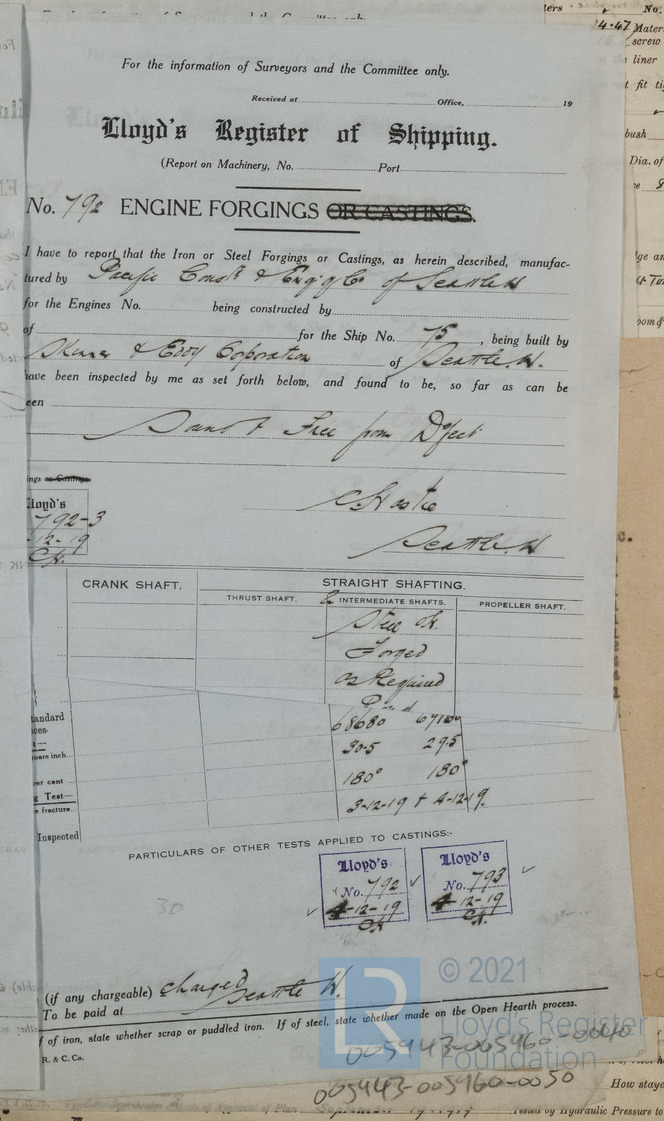 For the information of Surveyors and the Committee only.
Received at Office, 19
Lloyd's Register of Shipping.
(Report on Machinery, No. Port
No. 792 ENGINE FORGINGS OR CASTINGS.
I have to report that the Iron or Steel Forgings or Castings, as herein described, manufac-
tured by Pacific Const & Eng'g Co of Seattle W
for the Engines No. being constructed by
of for the Ship No. 75, being built by
Skinner & Eddy Corporation of Seattle. W.
have been inspected by me as set forth below, and found to be, so far as can be
een
Sound & Free from Defect
ngs or Castings
Lloyd's
792-3
-12-19
CH.
C Hastie
Seattle. W
CRANK SHAFT. STRAIGHT SHAFTING.
THRUST SHAFT. INTERMEDIATE SHAFTS. PROPELLER SHAFT.
Steel OH.
Forged
as Required
tandard
ces-
68680
uare inch
30.5 29.5
per cent
180° 180°
g Test—
e fracture.
3-12-19 & 4-12-19.
Inspected
PARTICULARS OF OTHER TESTS APPLIED TO CASTINGS:-
Lloyd's
No. 792
4-12-19
CH
Lloyd's
No. 793
4-12-19
CH.
30
(if any chargeable) charged
To be paid at Seattle W.
f of iron, state whether scrap or puddled iron. If of steel, state whether made on the Open Hearth process.
R. & C. Co.
© 2021
LR
Lloyd's Register
Foundation
005443-005460-0040
005443-005460-0050
No.
4.47
Mater
screw
liner
fit ti
bush
Dia. of
How staye
Tested by Hydraulic Pressure to